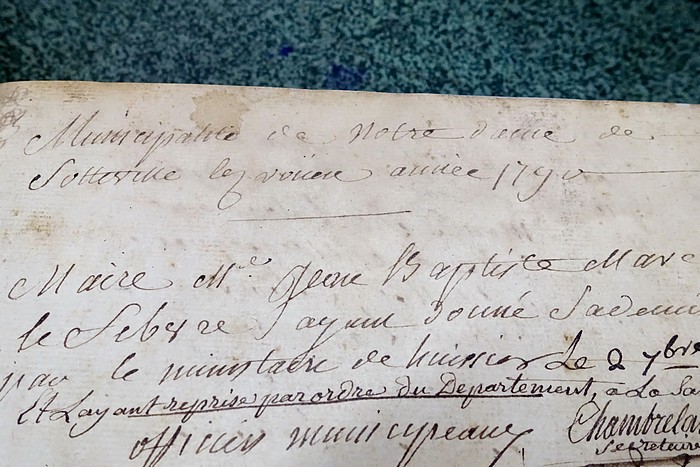 Municipalité de Notre dame de
Sotteville lez roüen année 1790
Maire Me Jean Baptiste Marc
le Febvre Layant donné
par le ministaire de huissier Le 2 7bre
Et Layant reprise par ordre du Departement, a La
officiers municipeaux Chambrelan
Secretaire